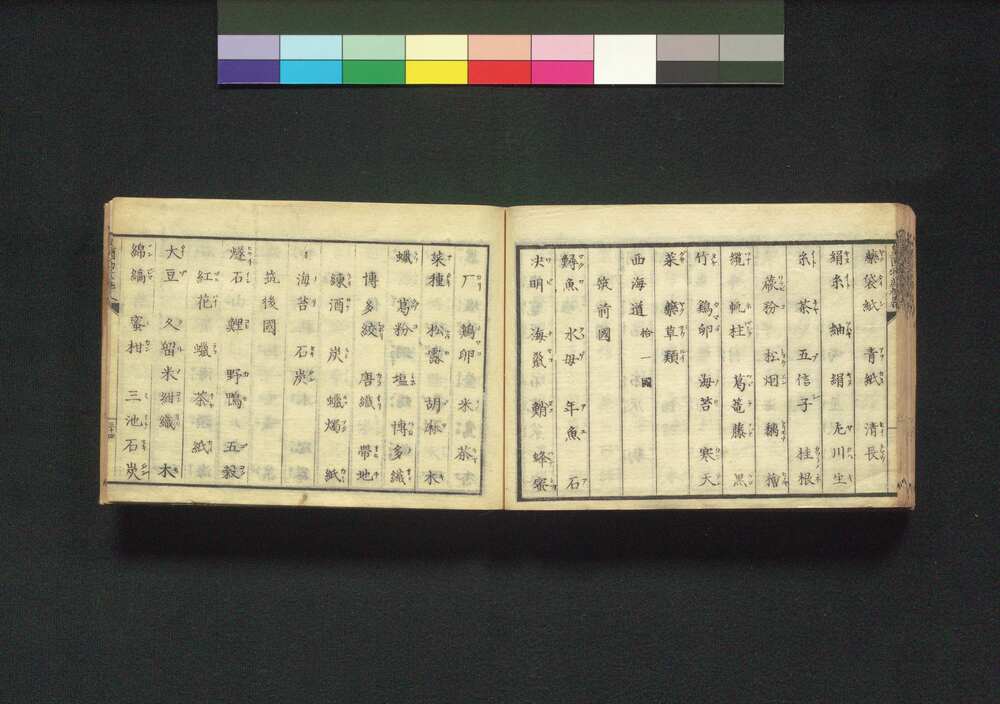 藥袋紙 青紙 清長
絹糸 紬 絹 尤川生
糸 茶 五倍子 桂根
蕨粉 松烟 檜
縄 帆柱 葛篭藤 黒
竹 鷄卵 海苔 寒天
菜 藥草類
西海道 拾一國
筑前國
鱘魚 水母 年魚 石
决明 海鼠 鮹 蜂蜜
厂 鷄卵 米 茶
菜種 松露 胡麻 木
蠟 葛粉 塩 博多織
博多絞 唐織 帯地
練酒 炭 蠟燭 紙
海苔 石炭
筑後國
燧石 鯉 野鴨 五穀
紅花 蠟 茶 紙
大豆 久留米紺織 木
綿縞 蜜柑 三池石炭